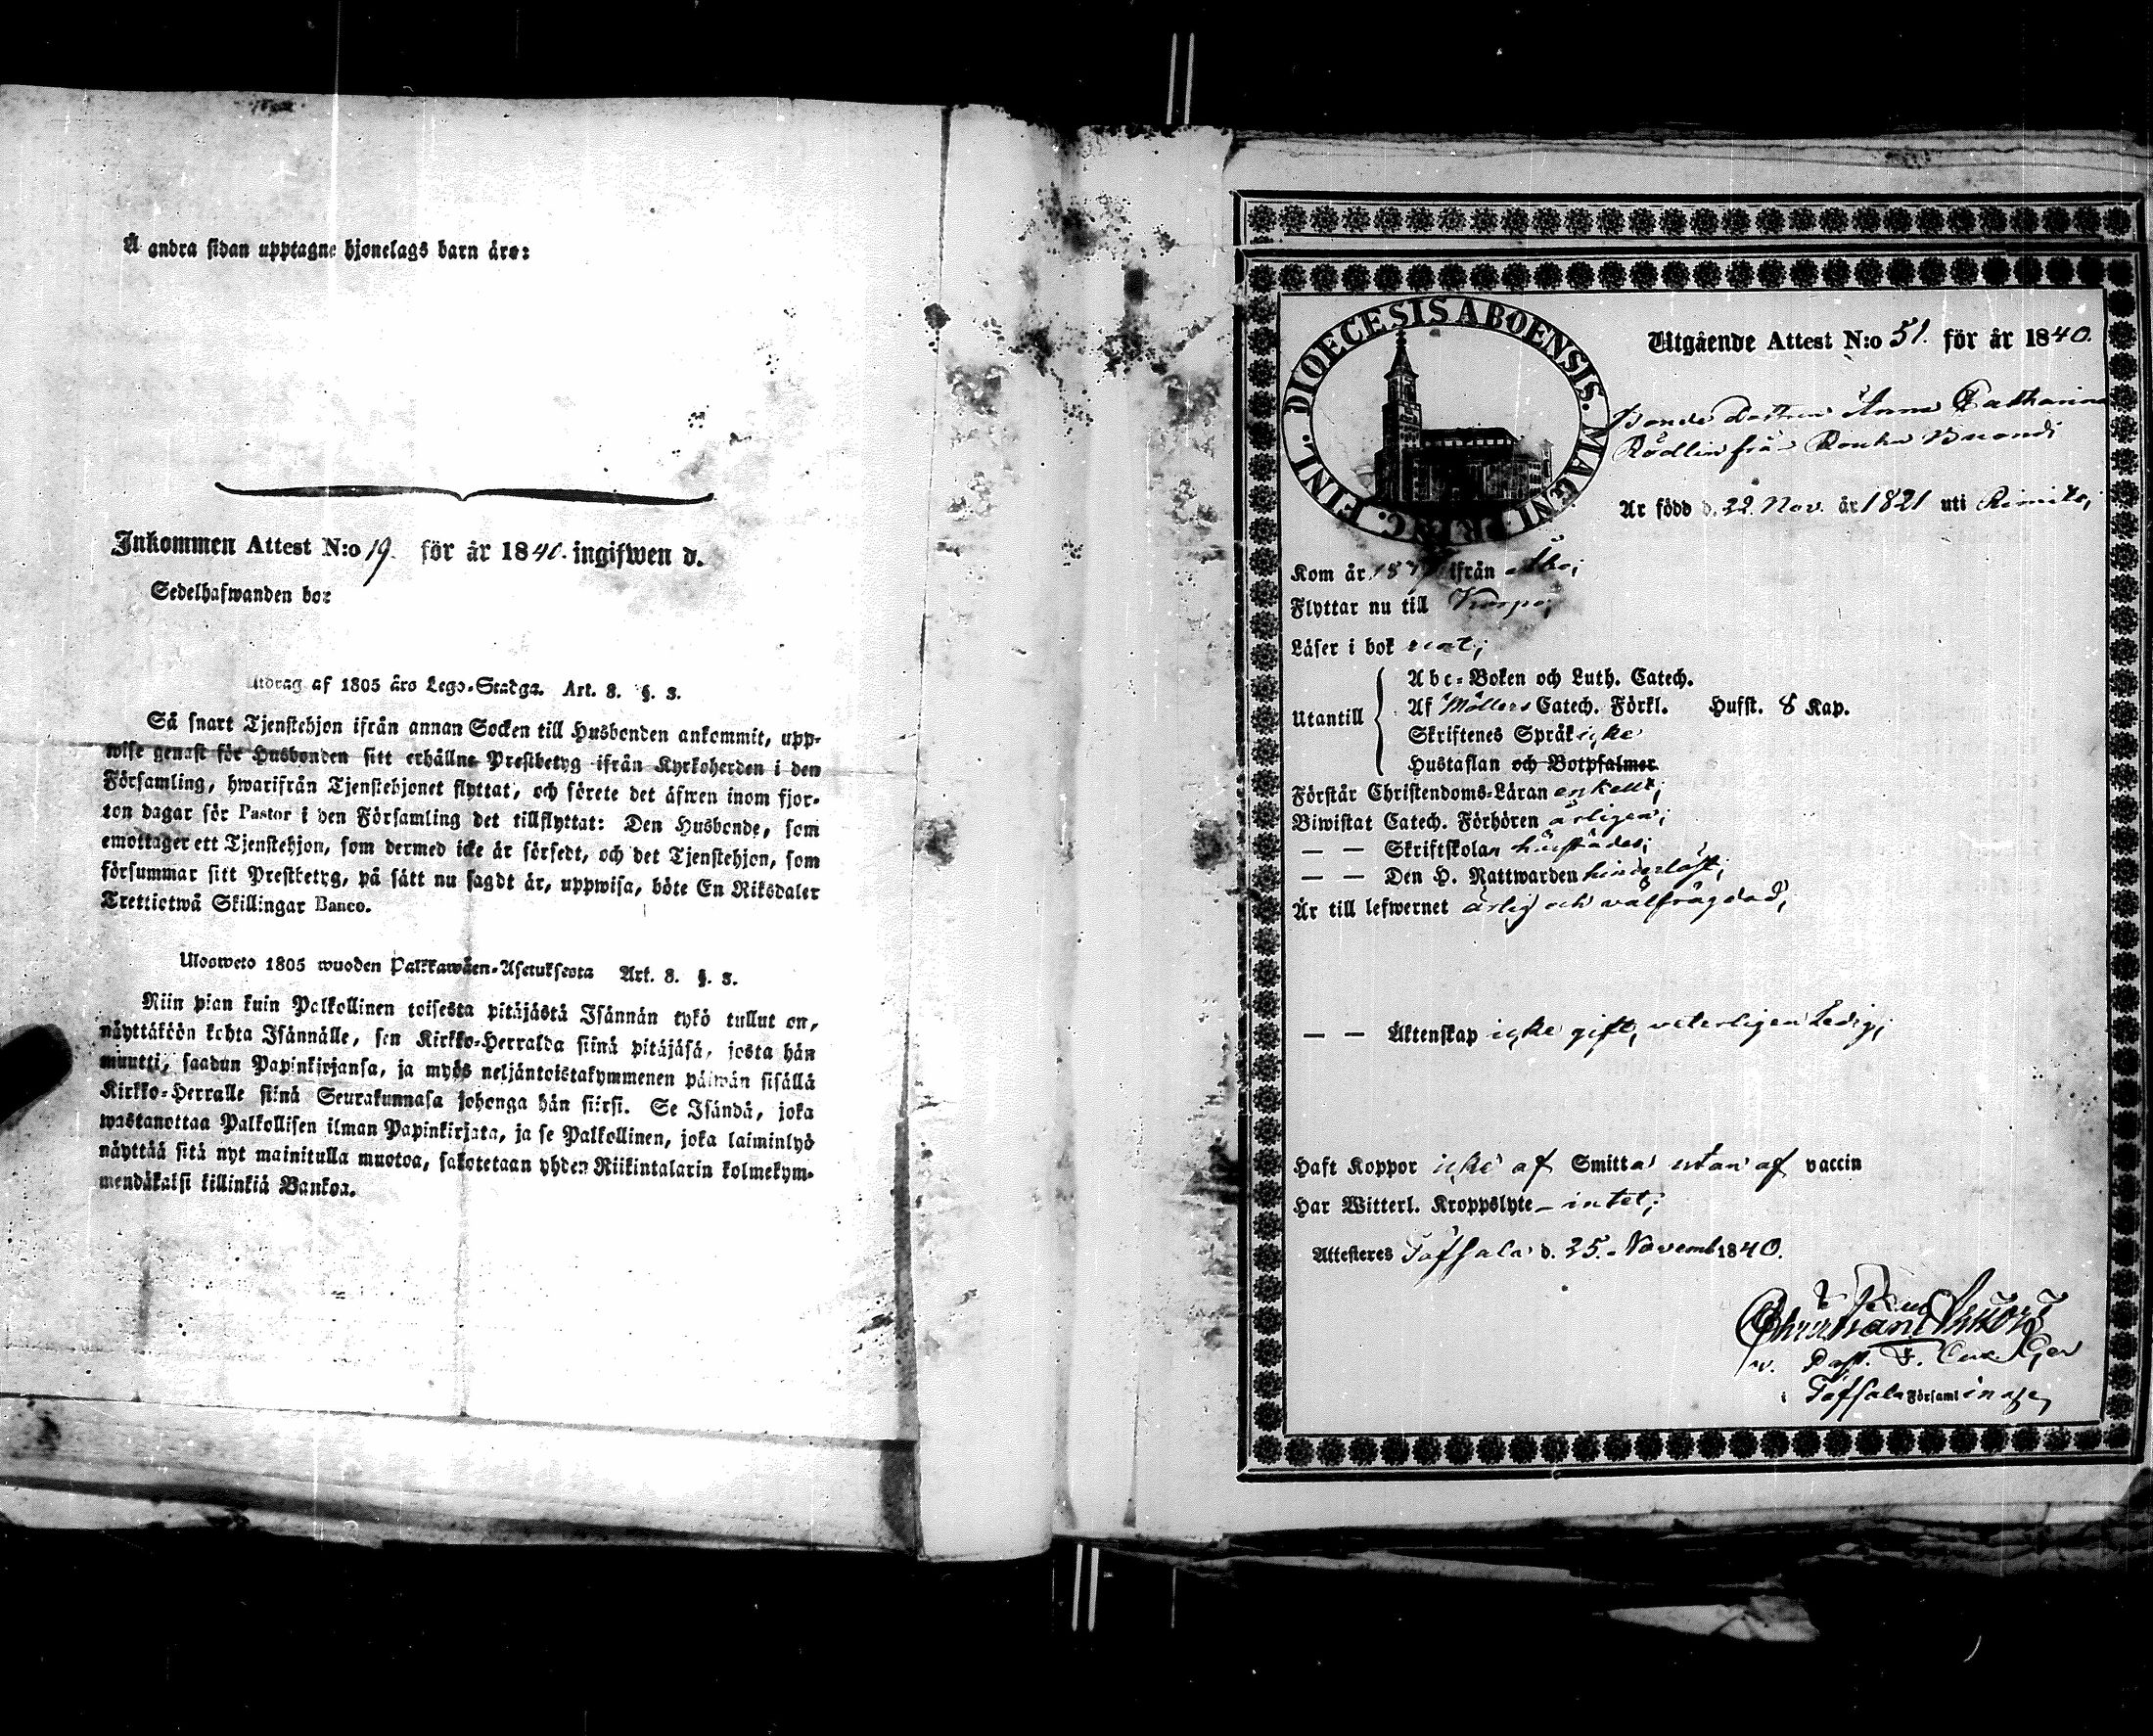 Å andra sidan upptagne hjonelags barn äro:
Inkommen Attest N:o 19. för år 1840. ingifwen d.
Sedelhafwanden bor
Utdrag af 1805 års Lego-Stadga. Art. 8. §. 3.
Så snart Tjenstehjon ifrån annan Socken till Husbonden ankommit, upp-
wise genast för Husbonden sitt erhållne Prestbetyg ifrån Kyrkoherden i den
Församling, hwarifrån Tjenstehjonet flyttat, och förete det äfwen inom fjor-
ton dagar för Pastor i den Församling det tillflyttat: Den Husbonde, som
emottager ett Tjenstehjon, som dermed icke är försedt, och det Tjenstehjon, som
försummar sitt Prestbetyg, på sätt nu sagdt är, uppwisa, böte En Riksdaler
Trettiotwå Skillingar Banco.
Ulosweto 1805 wuoden Palkkawäen-Asetuksesta Art. 8. §. 3.
Niin pian kuin Palkollinen toisesta pitäjästä Isännän tykö tullut on,
näyttäköön kohta Isännälle, sen Kirkko-Herralda siinä pitäjäsä, josta hän
muutti, saadun Papinkirjansa, ja myös neljäntoistakymmenen päiwän sisällä
Kirkko-Herralle siinä Seurakunnasa johonga hän siirsi. Se Isändä, joka
wastanottaa Palkollisen ilman Papinkirjata, ja se Palkollinen, joka laiminlyö
näyttää sitä nyt mainitulla muotoa, sakotetaan yhden Riikintalarin kolmekym-
mendäkaksi killinkiä Bankoa.
DIOECESIS ABOENSIS. MAGNI PRINC. FINL.
Utgående Attest N:o 51. för år 1840.
Bonde Dottren Anna Catharina
Rödlin från
Är född d. 22. Nov. år 1821 uti Rimito;
Kom år 18 ifrån Åbo;
Flyttar nu till Korpo;
Läser i bok
Utantill
Abc-Boken och Luth. Catech.
Af Möllers Catech. Förkl. Hufst. 8 Kap.
Skriftenes Språk icke
Hustaflan och Botpsalmer
Förstår Christendoms-Läran enkelt;
Biwistat Catech. Förhören årligen;
— — Skriftskolan härstädes;
— — Den H. Nattwarden hinderlöst;
Är till lefwernet ärlig och välfrägdad;
— — Äktenskap icke gift, veterligen Ledig;
Haft Koppor icke af Smitta utan af vaccin
Har Witterl. Kroppslyte – intet;
Attesteres Töfsala d. 25. Novemb 1840.
Christian
v. Past.
i Töfsala Församl ing